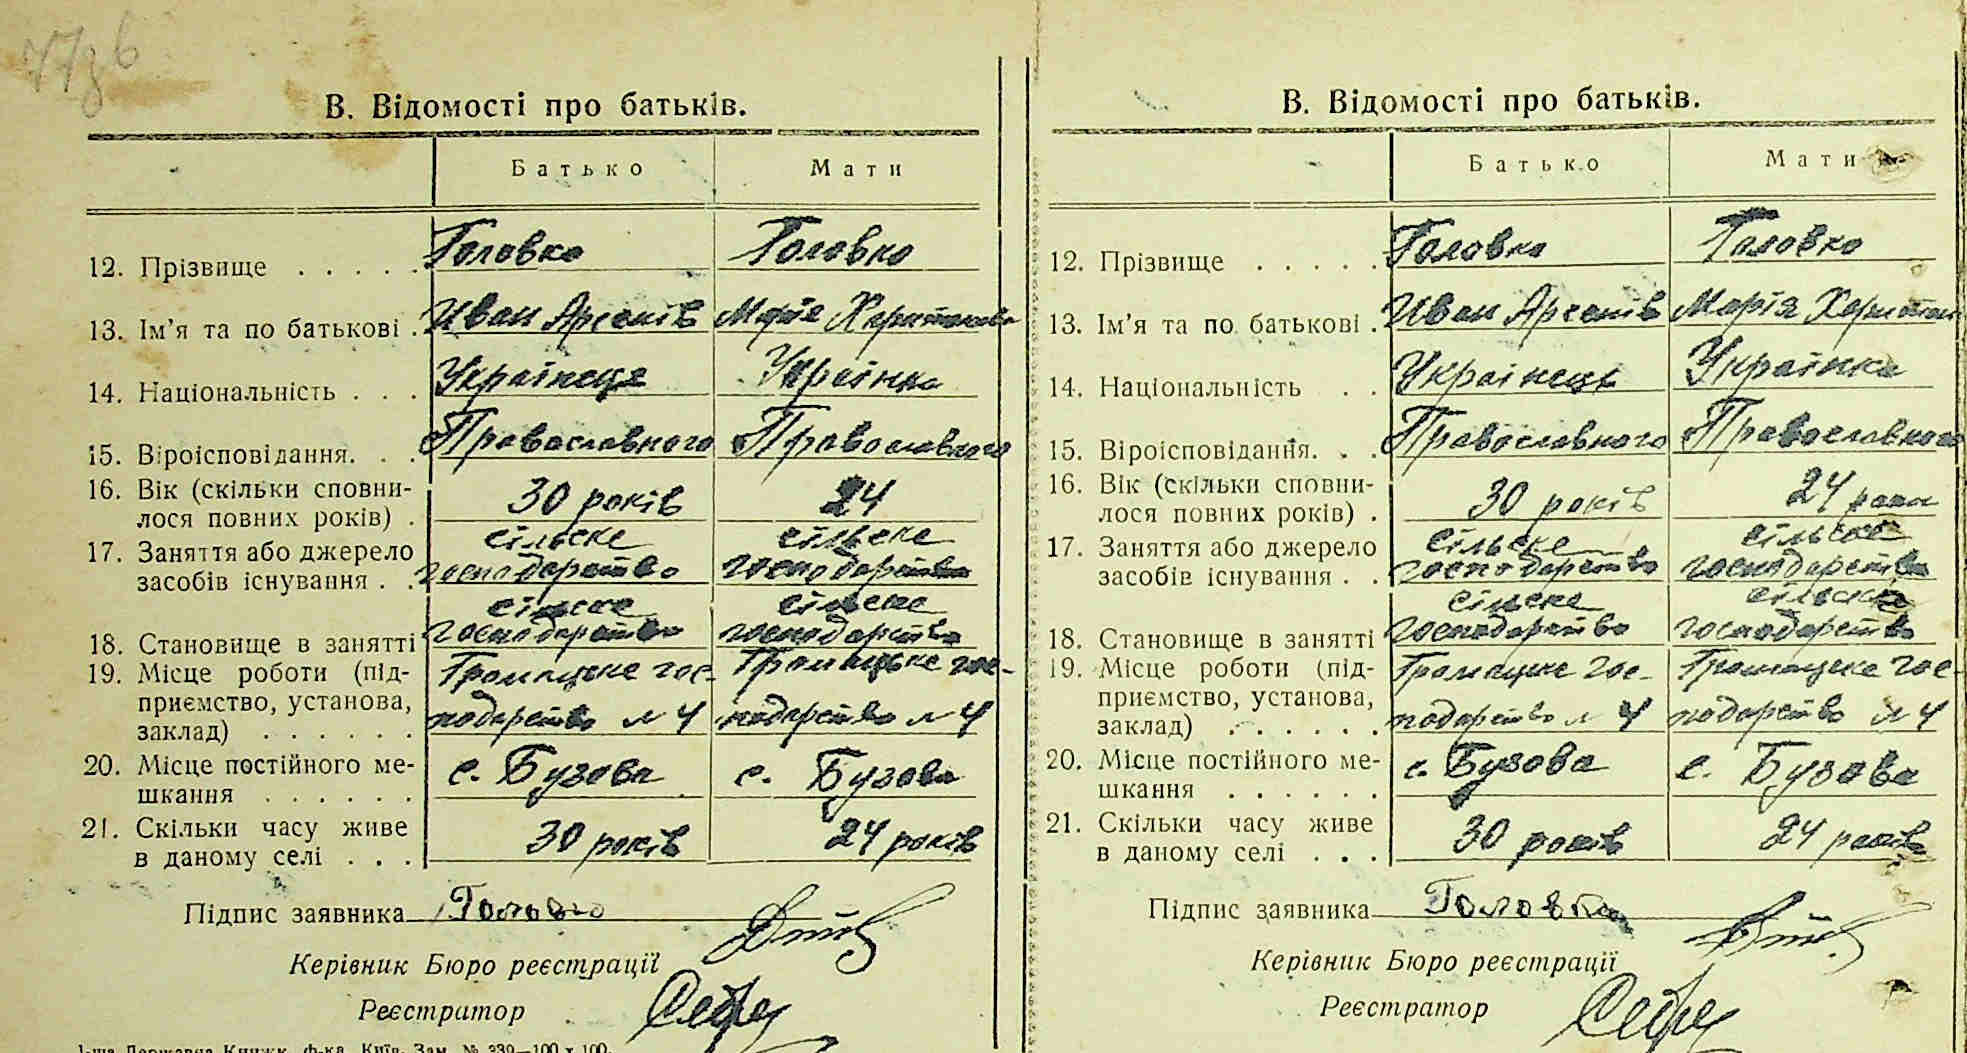 В. Відомості про батьків.
Батько Мати
12. Прізвище . . . . . Головко Головко
13. Ім’я та по батькові . Иван Арсенів Марія Харитонова
14. Національність . . . Українець Українка
15. Віроісповідання. . . Православного Православного
16. Вік (скільки сповни-
лося повних років) . 30 років 24
17. Заняття або джерело сільске сільске
засобів існування . . господарство господарство
сільске сільске
18. Становище в занятті господарство господарство
19. Місце роботи (під- Громацьке гос- Громацьке гос-
приємство, установа,
заклад) . . . . . . подарство № 4 подарство № 4
20. Місце постійного ме-
шкання . . . . . . с. Бузова с. Бузова
21. Скільки часу живе
в даному селі . . . 30 років 24 років
Підпис заявника Головко
Керівник Бюро реєстрації
Реєстратор
1-ша Державна Книжк. ф-ка, Київ. Зам. № 339—100 х 100.
В. Відомості про батьків.
Батько Мати
12. Прізвище . . . . . Головко Головко
13. Ім’я та по батькові . Иван Арсенів Марія Харитон
14. Національність . . Українець Українка
15. Віроісповідання. . . Православного Православного
16. Вік (скільки сповни-
лося повних років) . 30 років 24 роки
17. Заняття або джерело сільске сільске
засобів існування . . господарство господарство
сільске сільске
18. Становище в занятті господарство господарство
19. Місце роботи (під- Громацьке гос- Громацьке гос-
приємство, установа,
заклад) . . . . . . подарство № 4 подарство № 4
20. Місце постійного ме-
шкання . . . . . . с. Бузова с. Бузова
21. Скільки часу живе
в даному селі . . . 30 років 24 років
Підпис заявника Головко
Керівник Бюро реєстрації
Реєстратор